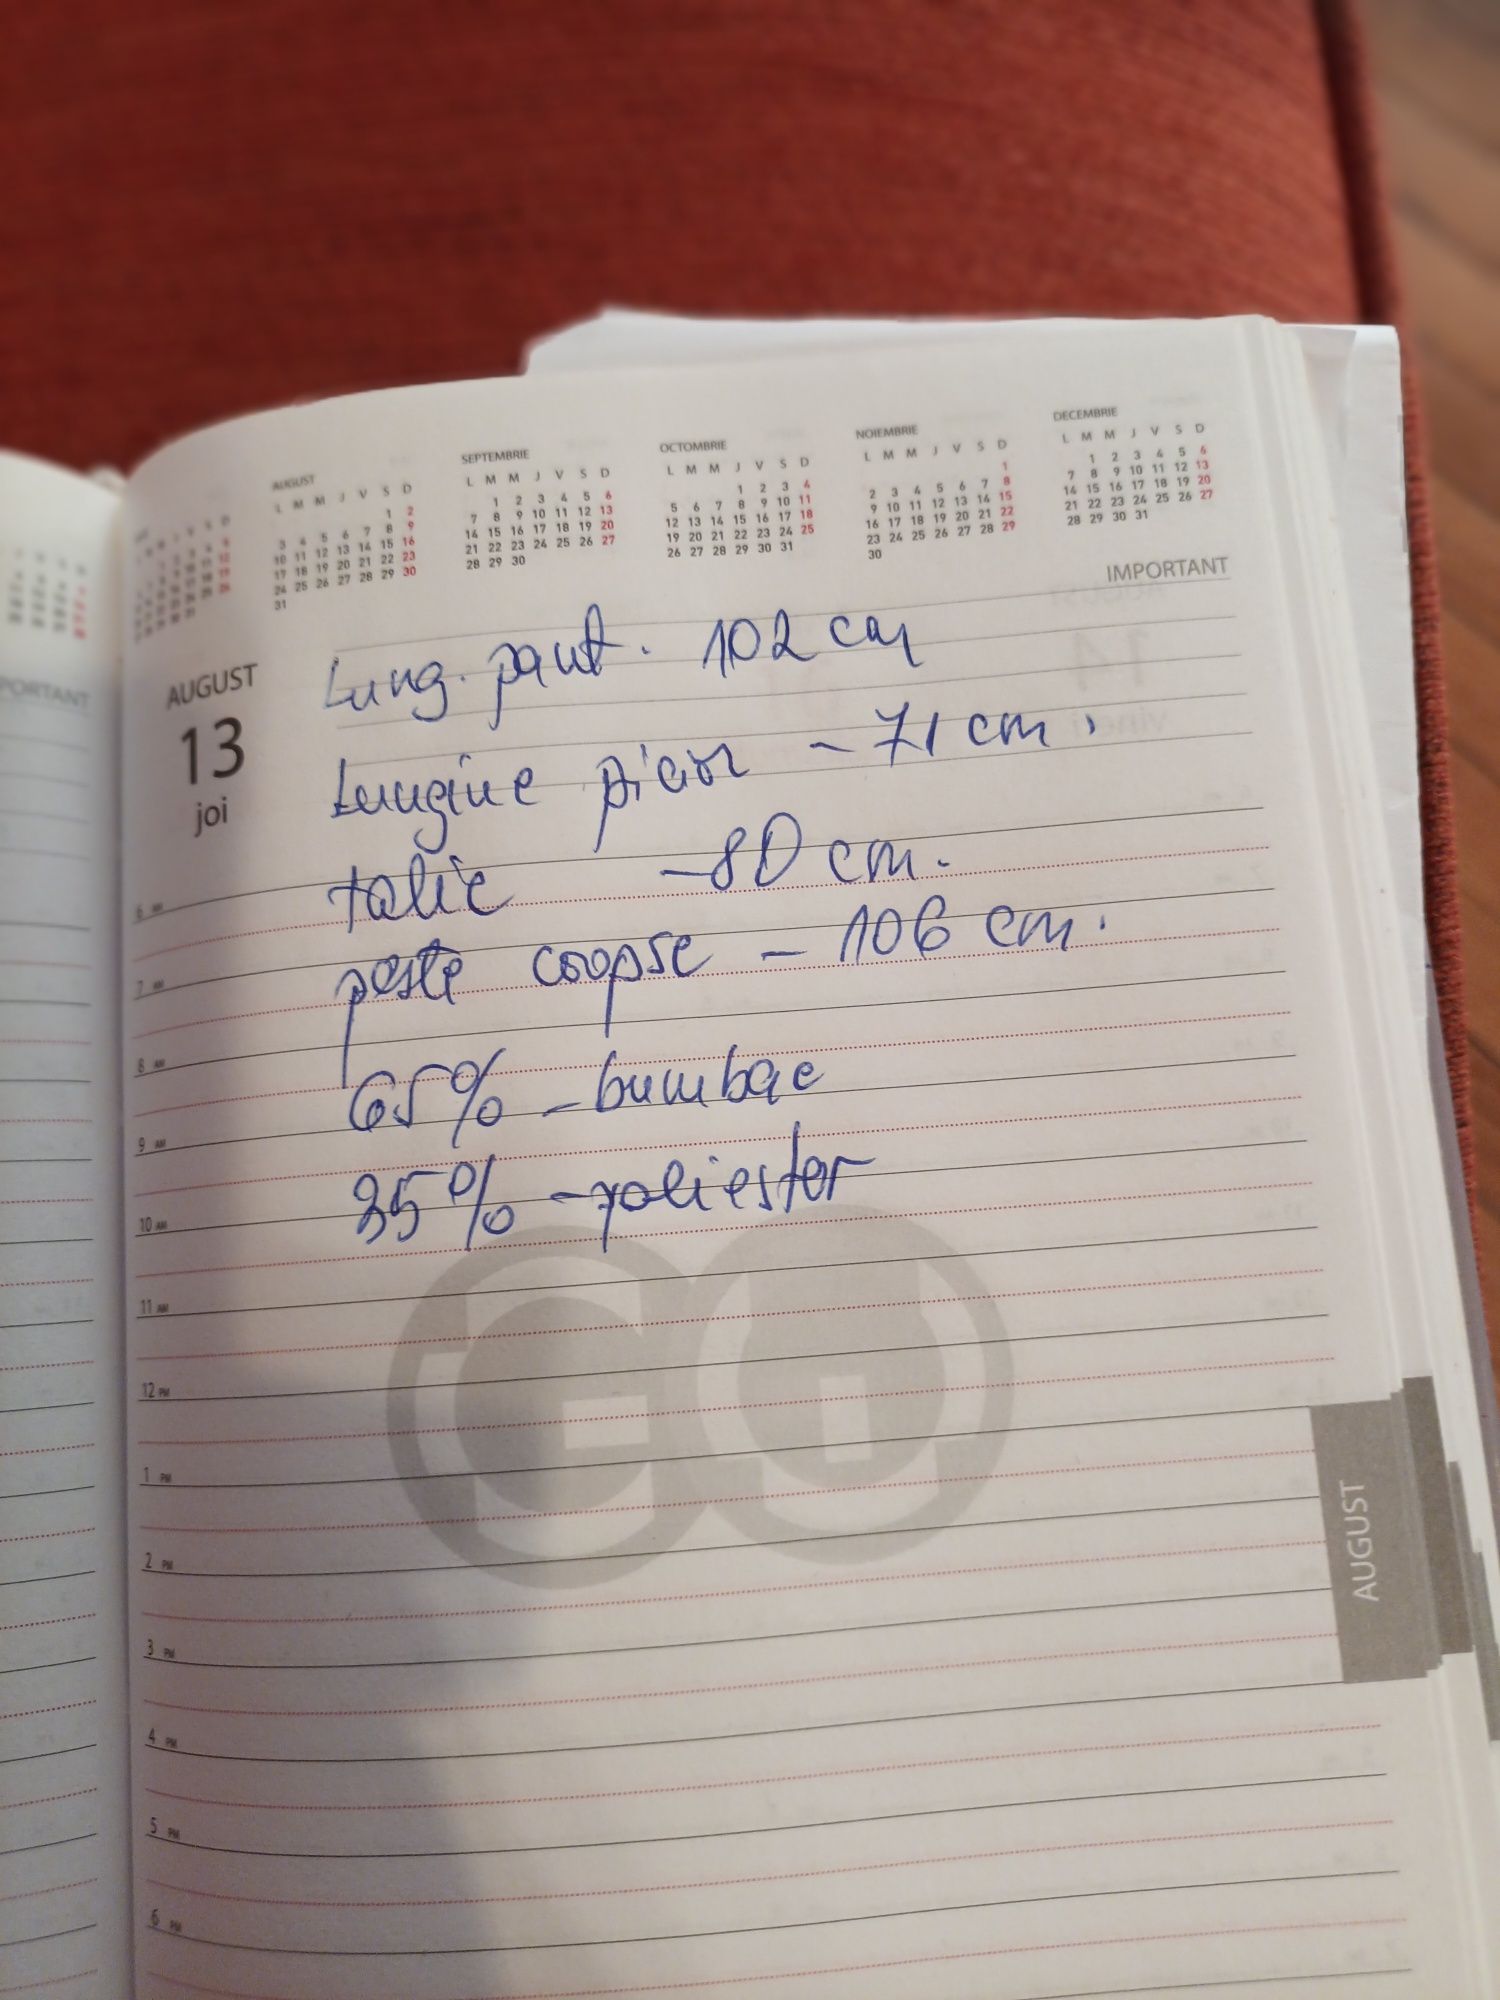 AUGUST
L M M J V S D
1 2
3 4 5 6 7 8 9
10 11 12 13 14 15 16
17 18 19 20 21 22 23
24 25 26 27 28 29 30
31
SEPTEMBRIE
L M M J V S D
1 2 3 4 5 6
7 8 9 10 11 12 13
14 15 16 17 18 19 20
21 22 23 24 25 26 27
28 29 30
OCTOMBRIE
L M M J V S D
1 2 3 4
5 6 7 8 9 10 11
12 13 14 15 16 17 18
19 20 21 22 23 24 25
26 27 28 29 30 31
NOIEMBRIE
L M M J V S D
1
2 3 4 5 6 7 8
9 10 11 12 13 14 15
16 17 18 19 20 21 22
23 24 25 26 27 28 29
30
DECEMBRIE
L M M J V S D
1 2 3 4 5 6
7 8 9 10 11 12 13
14 15 16 17 18 19 20
21 22 23 24 25 26 27
28 29 30 31
PORTANT
IMPORTANT
AUGUST
13
joi
Lung. pant. 102 cm
Lungine picior - 71 cm.
talie - 80 cm.
peste coapse - 106 cm.
65% - bumbac
35% - poliester
6 AM
7 AM
8 AM
9 AM
10 AM
11 AM
12 PM
1 PM
2 PM
3 PM
4 PM
5 PM
6 PM
AUGUST